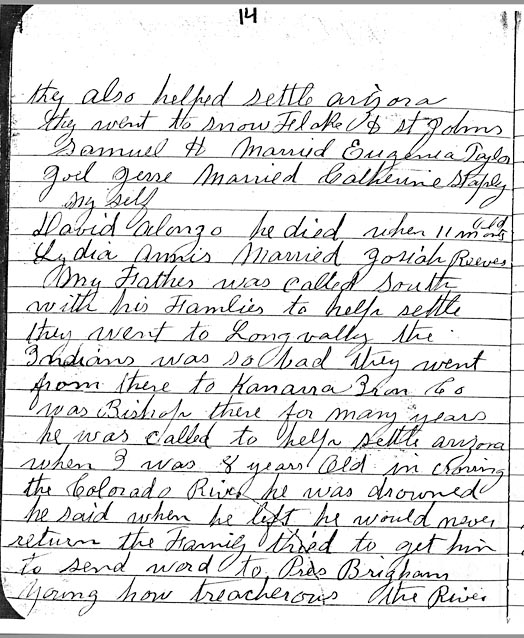 14
they also helped settle arizona
they went to Snow Flake & St Johns
Samuel H Married Eugenia Taylor
Joel Jesse Married Catherine Staply
my self
David alonzo he died when 11 mons old
Lydia Annis Married Josiah Reeves
My Father was called South
with his Famlies to help settle
they went to Long vally the
Indians was so bad they went
from there to Kanarra Iron Co
was Bishop there for many years
he was called to help settle arizona
when I was 8 years Old in crossing
the Colorado River he was drowned
he said when he left he would never
return the Family tried to get him
to send word to Pres Brigham
Young how treacherous the River